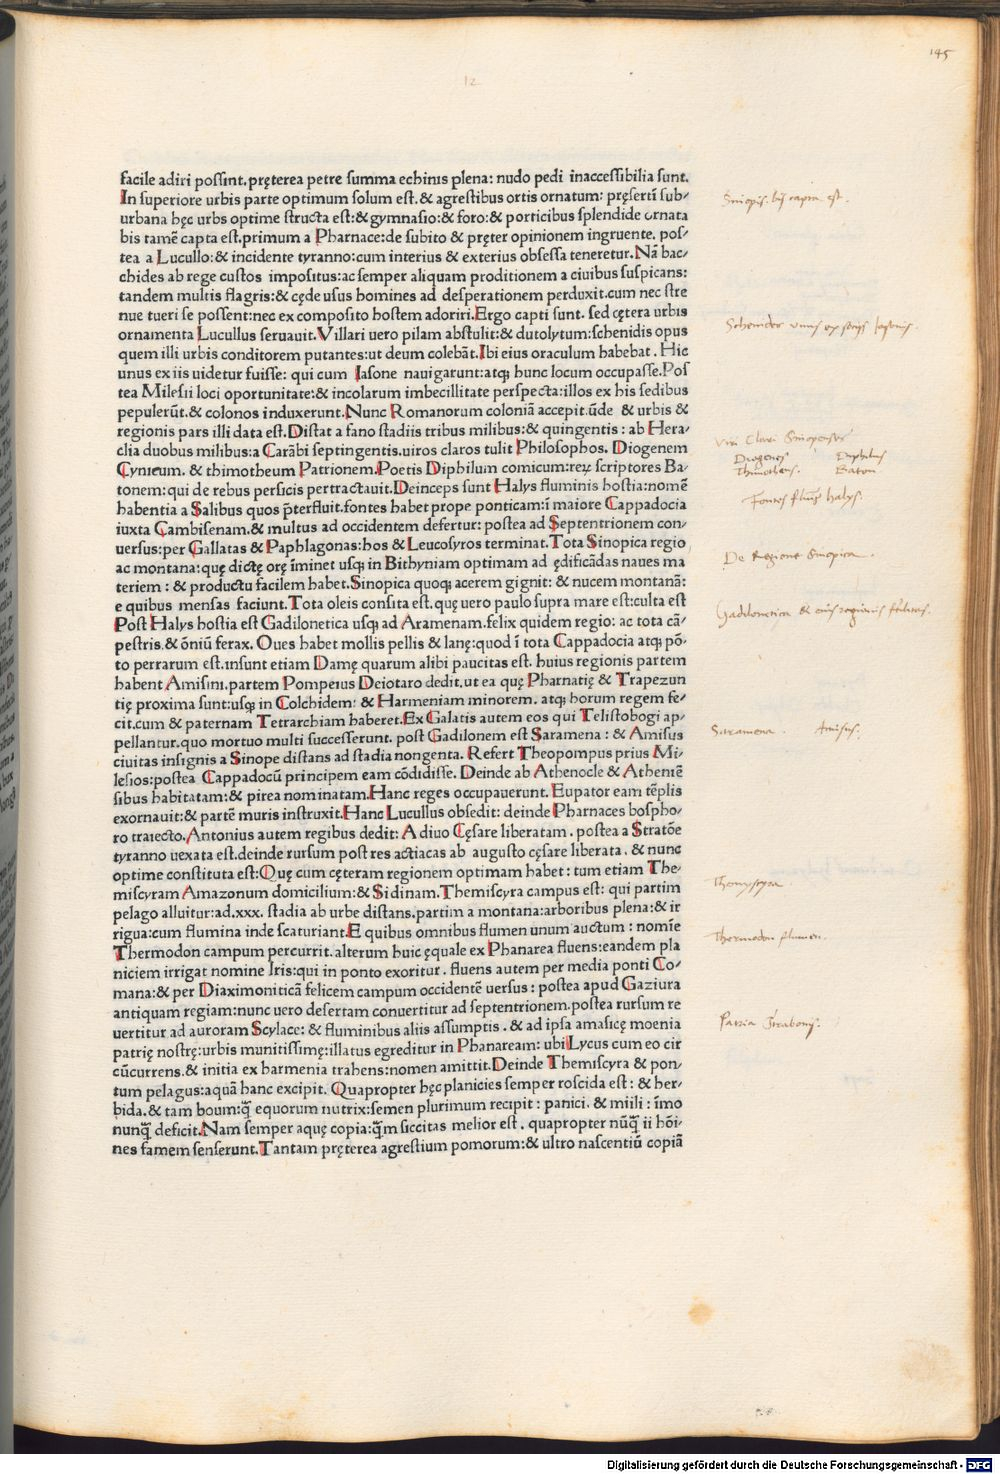 145
12
facile adiri possint. pręterea petre summa echinis plena: nudo pedi inaccessibilia sunt.
In superiore urbis parte optimum solum est. & agrestibus ortis ornatum: pręserti sub⸗
urbana hęc urbs optime structa est: & gymnasio: & foro: & porticibus splendide ornata
bis tamē capta est. primum a Pharnace: de subito & pręter opinionem ingruente. pos⸗
tea a Lucullo: & incidente tyranno: cum interius & exterius obsessa teneretur. Nā bac⸗
chides ab rege custos impositus: ac semper aliquam proditionem a ciuibus suspicans:
tandem multis flagris: & cęde usus homines ad desperationem perduxit. cum nec stre
nue tueri se possent: nec ex composito hostem adoriri. Ergo capti sunt. sed cętera urbis
ornamenta Lucullus seruauit. Villari uero pilam abstulit: & dutolytum: schenidis opus
quem illi urbis conditorem putantes: ut deum colebāt. Ibi eius oraculum habebat. Hic
unus ex iis uidetur fuisse: qui cum Iasone nauigarunt: atq; hunc locum occupasse. Pos
tea Milesii loci oportunitate: & incolarum imbecillitate perspecta: illos ex his sedibus
pepulerūt. & colonos induxerunt. Nunc Romanorum coloniā accepit. ūde & urbis &
regionis pars illi data est. Distat a fano stadiis tribus milibus: & quingentis: ab Hera⸗
clia duobus milibus: a Carābi septingentis. uiros claros tulit Philosophos. Diogenem
Cynicum. & thimotheum Patrionem. Poetis Diphilum comicum: rerȳ scriptores Ba⸗
tonem: qui de rebus persicis pertractauit. Deinceps sunt Halys fluminis hostia: nomē
habentia a Salibus quos p̄terfluit. fontes habet prope ponticam: ī maiore Cappadocia
iuxta Cambisenam. & multus ad occidentem defertur: postea ad Septentrionem con⸗
uersus: per Gallatas & Paphlagonas: hos & Leucosyros terminat. Tota Sinopica regio
ac montana: quę dictę orę īminet usq; in Bithyniam optimam ad ędificādas naues ma
teriem: & productu facilem habet. Sinopica quoq; acerem gignit: & nucem montanā:
e quibus mensas faciunt. Tota oleis consita est. quę uero paulo supra mare est: culta est
Post Halys hostia est Gadilonetica usq; ad Aramenam. felix quidem regio: ac tota cā⸗
pestris. & ōniū ferax. Oues habet mollis pellis & lanę: quod ī tota Cappadocia atq; pō⸗
to perrarum est. insunt etiam Damę quarum alibi paucitas est. huius regionis partem
habent Amisini. partem Pompeius Deiotaro dedit. ut ea quę Pharnatię & Trapezun
tię proxima sunt: usq; in Colchidem: & Harmeniam minorem. atq; horum regem fe⸗
cit. cum & paternam Tetrarchiam haberet. Ex Galatis autem eos qui Telistobogi ap⸗
pellantur. quo mortuo multi successerunt. post Gadilonem est Saramena: & Amisus
ciuitas insignis a Sinope distans ad stadia nongenta. Refert Theopompus prius Mi⸗
lesios: postea Cappadocū principem eam cōdidisse. Deinde ab Athenocle & Atheniē
sibus habitatam: & pirea nominatam. Hanc reges occupauerunt. Eupator eam tēplis
exornauit: & partē muris instruxit. Hanc Lucullus obsedit: deinde Pharnaces bospho⸗
ro traiecto. Antonius autem regibus dedit: A diuo Cęsare liberatam. postea a Stratōe
tyranno uexata est. deinde rursum post res actiacas ab augusto cęsare liberata. & nunc
optime constituta est: Quę cum cęteram regionem optimam habet: tum etiam The⸗
miscyram Amazonum domicilium: & Sidinam. Themiscyra campus est: qui partim
pelago alluitur: ad. xxx. stadia ab urbe distans. partim a montana: arboribus plena: & ir
rigua: cum flumina inde scaturiant. E quibus omnibus flumen unum auctum: nomie
Thermodon campum percurrit. alterum huic ęquale ex Phanarea fluens: eandem pla
niciem irrigat nomine Iris: qui in ponto exoritur. fluens autem per media ponti Co⸗
mana: & per Diaximoniticā felicem campum occidentē uersus: postea apud Gaziura
antiquam regiam: nunc uero desertam conuertitur ad septentrionem. postea rursum re
uertitur ad auroram Scylace: & fluminibus aliis assumptis. & ad ipsa amasicę moenia
patrię nostrę: urbis munitissimę: illatus egreditur in Phanaream: ubi Lycus cum eo cir
cūcurrens. & initia ex harmenia trahens: nomen amittit. Deinde Themiscyra & pon⸗
tum pelagus: aquā hanc excipit. Quapropter hęc planicies semper roscida est: & her⸗
bida. & tam boum: q̄ equorum nutrix: semen plurimum recipit: panici. & miili: īmo
nunq̄ deficit. Nam semper aquę copia: q̄m siccitas melior est. quapropter nūq̄ ii hōi⸗
nes famem senserunt. Tantam pręterea agrestium pomorum: & ultro nascentiū copiā
Sinopis. bis capta est.
Schenides unus ex sociis Iasonis.
Viri Clari Sinopenses
Diogenes Diphilus
Thimotheus. Baton
Fontes flum̄ halys.
De Regione Sinopica.
Gadilonetica & eius regionis fertilitas.
Saramena. Amisus.
Themyscyra.
Thermodon flumen.
Patria Strabonis.
Digitalisierung gefördert durch die Deutsche Forschungsgemeinschaft - DFG